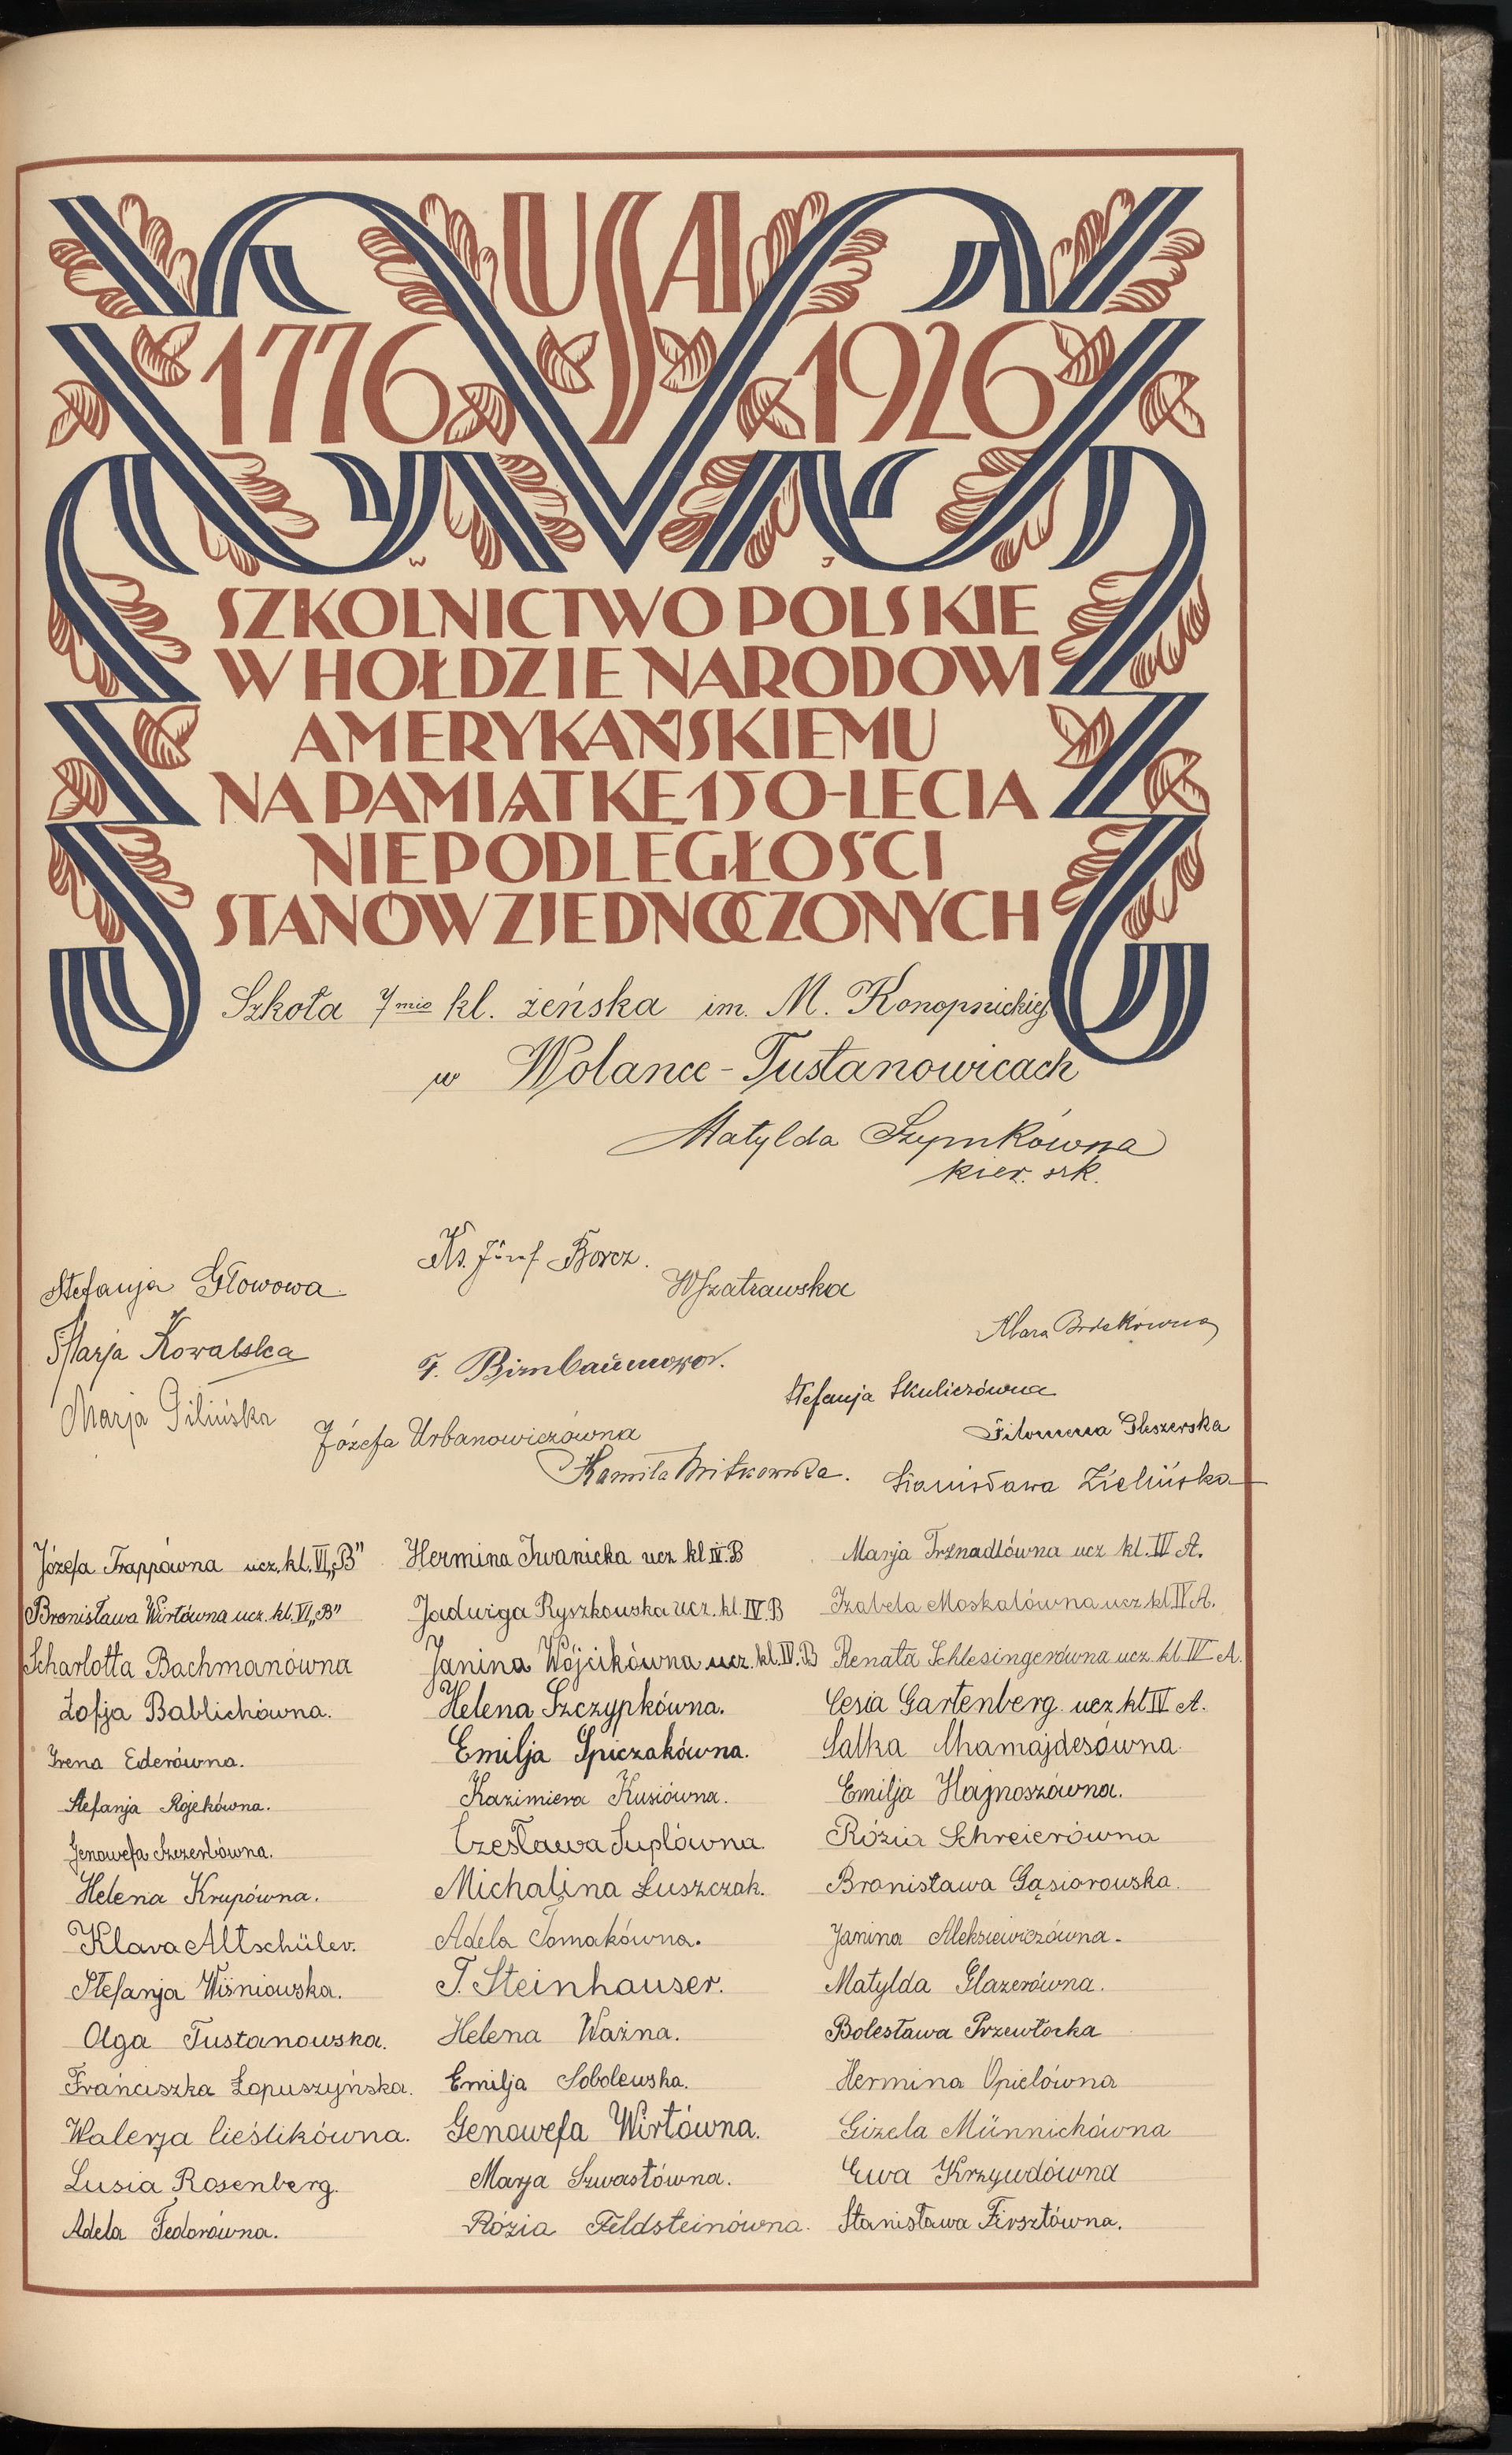 USA
1776 1926
W J
SZKOLNICTWO POLSKIE
W HOŁDZIE NARODOWI
AMERYKAŃSKIEMU
NA PAMIĄTKĘ 150-LECIA
NIEPODLEGŁOŚCI
STANÓW ZJEDNOCZONYCH
Szkoła 7mio kl. żeńska im. M. Konopnickiej
w Wolance - Tustanowicach
Matylda Szymkówna
kier. szk.
Ks. Józef Borcz.
Stefanja Głowowa.
WSzatrawska
Klara
Marja Kowalska
F. Birnbaumowa.
Stefanja Skuliczówna
Marja Gilińska
Józefa Urbanowiczówna
Filomena Gluszerska
Kamila Witkowska.
Stanisława Zielińska
Józefa Trappówna ucz. kl. VI „B"
Bronisława Wirtówna ucz. kl. VI „B"
Scharlotta Bachmanówna
Zofja Bablichówna.
Irena Ederówna.
Stefanja Rojekówna.
Genowefa Szczerbówna.
Helena Krupówna.
Klara Altschüler.
Stefanja Wiśniowska.
Olga Tustanowska.
Franciszka Łopuszyńska.
Walerja Cieślikówna.
Lusia Rosenberg.
Adela Fedorówna.
Hermina Iwanicka ucz kl IV. B
Jadwiga Ryszkowska ucz. kl. IV. B
Janina Wójcikówna ucz. kl. IV. B
Helena Szczypkówna.
Emilja Spiczakówna.
Kazimiera Kusiówna.
Czesława Suplówna.
Michalina Łuszczak.
Adela Tomakówna.
T. Steinhauser.
Helena Ważna.
Emilja Sobolewska.
Genowefa Wirtówna.
Marja Szwastówna.
Rózia Feldsteinówna.
Marja Trznadlówna ucz kl. IV A.
Izabela Moskalówna ucz kl IV A.
Renata Schlesingerówna ucz. kl. IV A.
Cesia Gartenberg ucz kl IV A.
Salka Chamajdesówna
Emilja Hajnoszówna.
Rózia Schreierówna
Bronisława Gąsiorowska.
Janina Aleksiewiczówna.
Matylda Glazerówna.
Bolesława Przewłocka
Hermina Opielówna
Gizela Münnichówna
Ewa Krzywdówna
Stanisława Firsztówna.